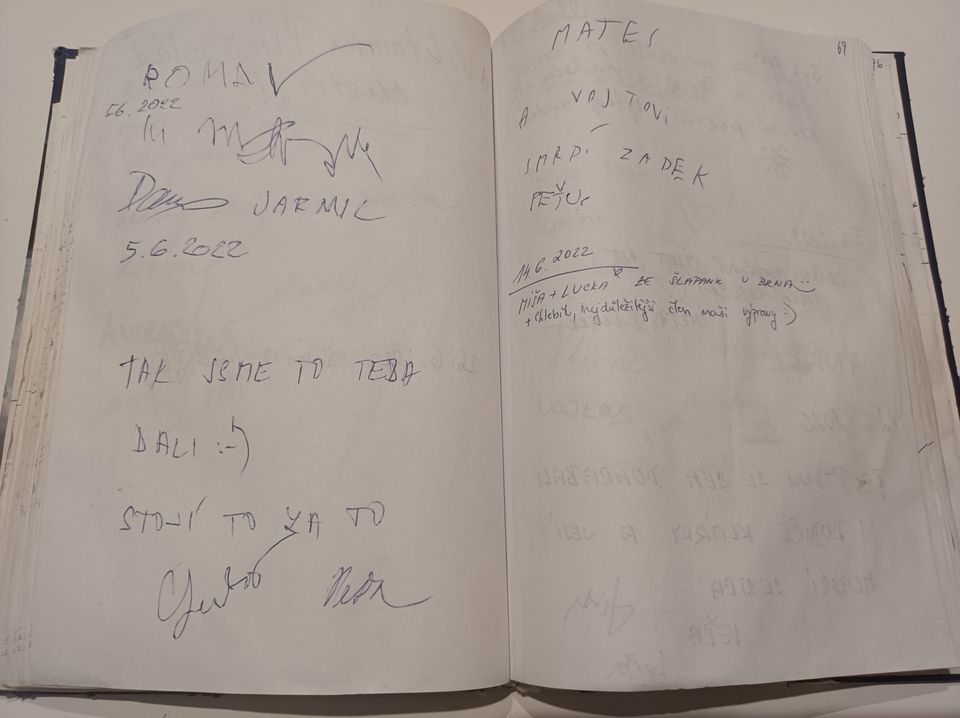 ROMAN
5.6.2022
JARMIL
5.6.2022
TAK JSME TO TEDA
DALI :-)
STOJÍ TO ZA TO
Petr
69
MATES
A VOJTOVI
SMRDÍ ZADEK
PEŤUS
14.6.2022
MÍŠA + LUCKA ZE ŠLAPANIC U BRNA :)
+ chlebík, nejdůležitější člen naší výpravy :)